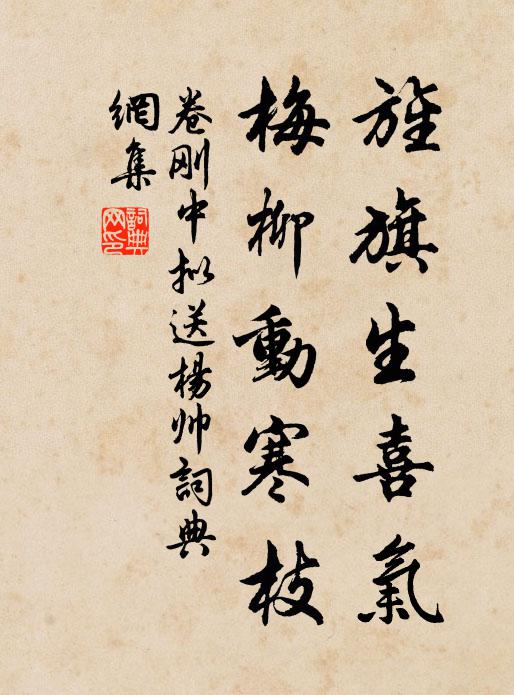 旌旗生喜氣
梅柳動寒枝
卷刚中拟送楊帅詞典
網集
詞典
网印